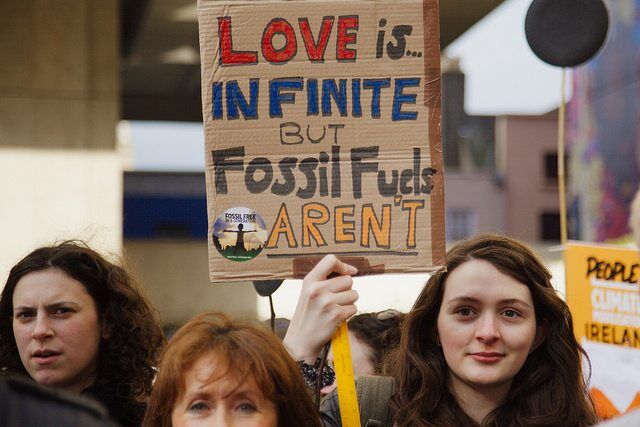 LOVE is...
INFINITE
BUT
Fossil Fuels
AREN'T
FOSSIL FREE
IN A GENERATION
PEOPLE
CLIMAT
IRELAN